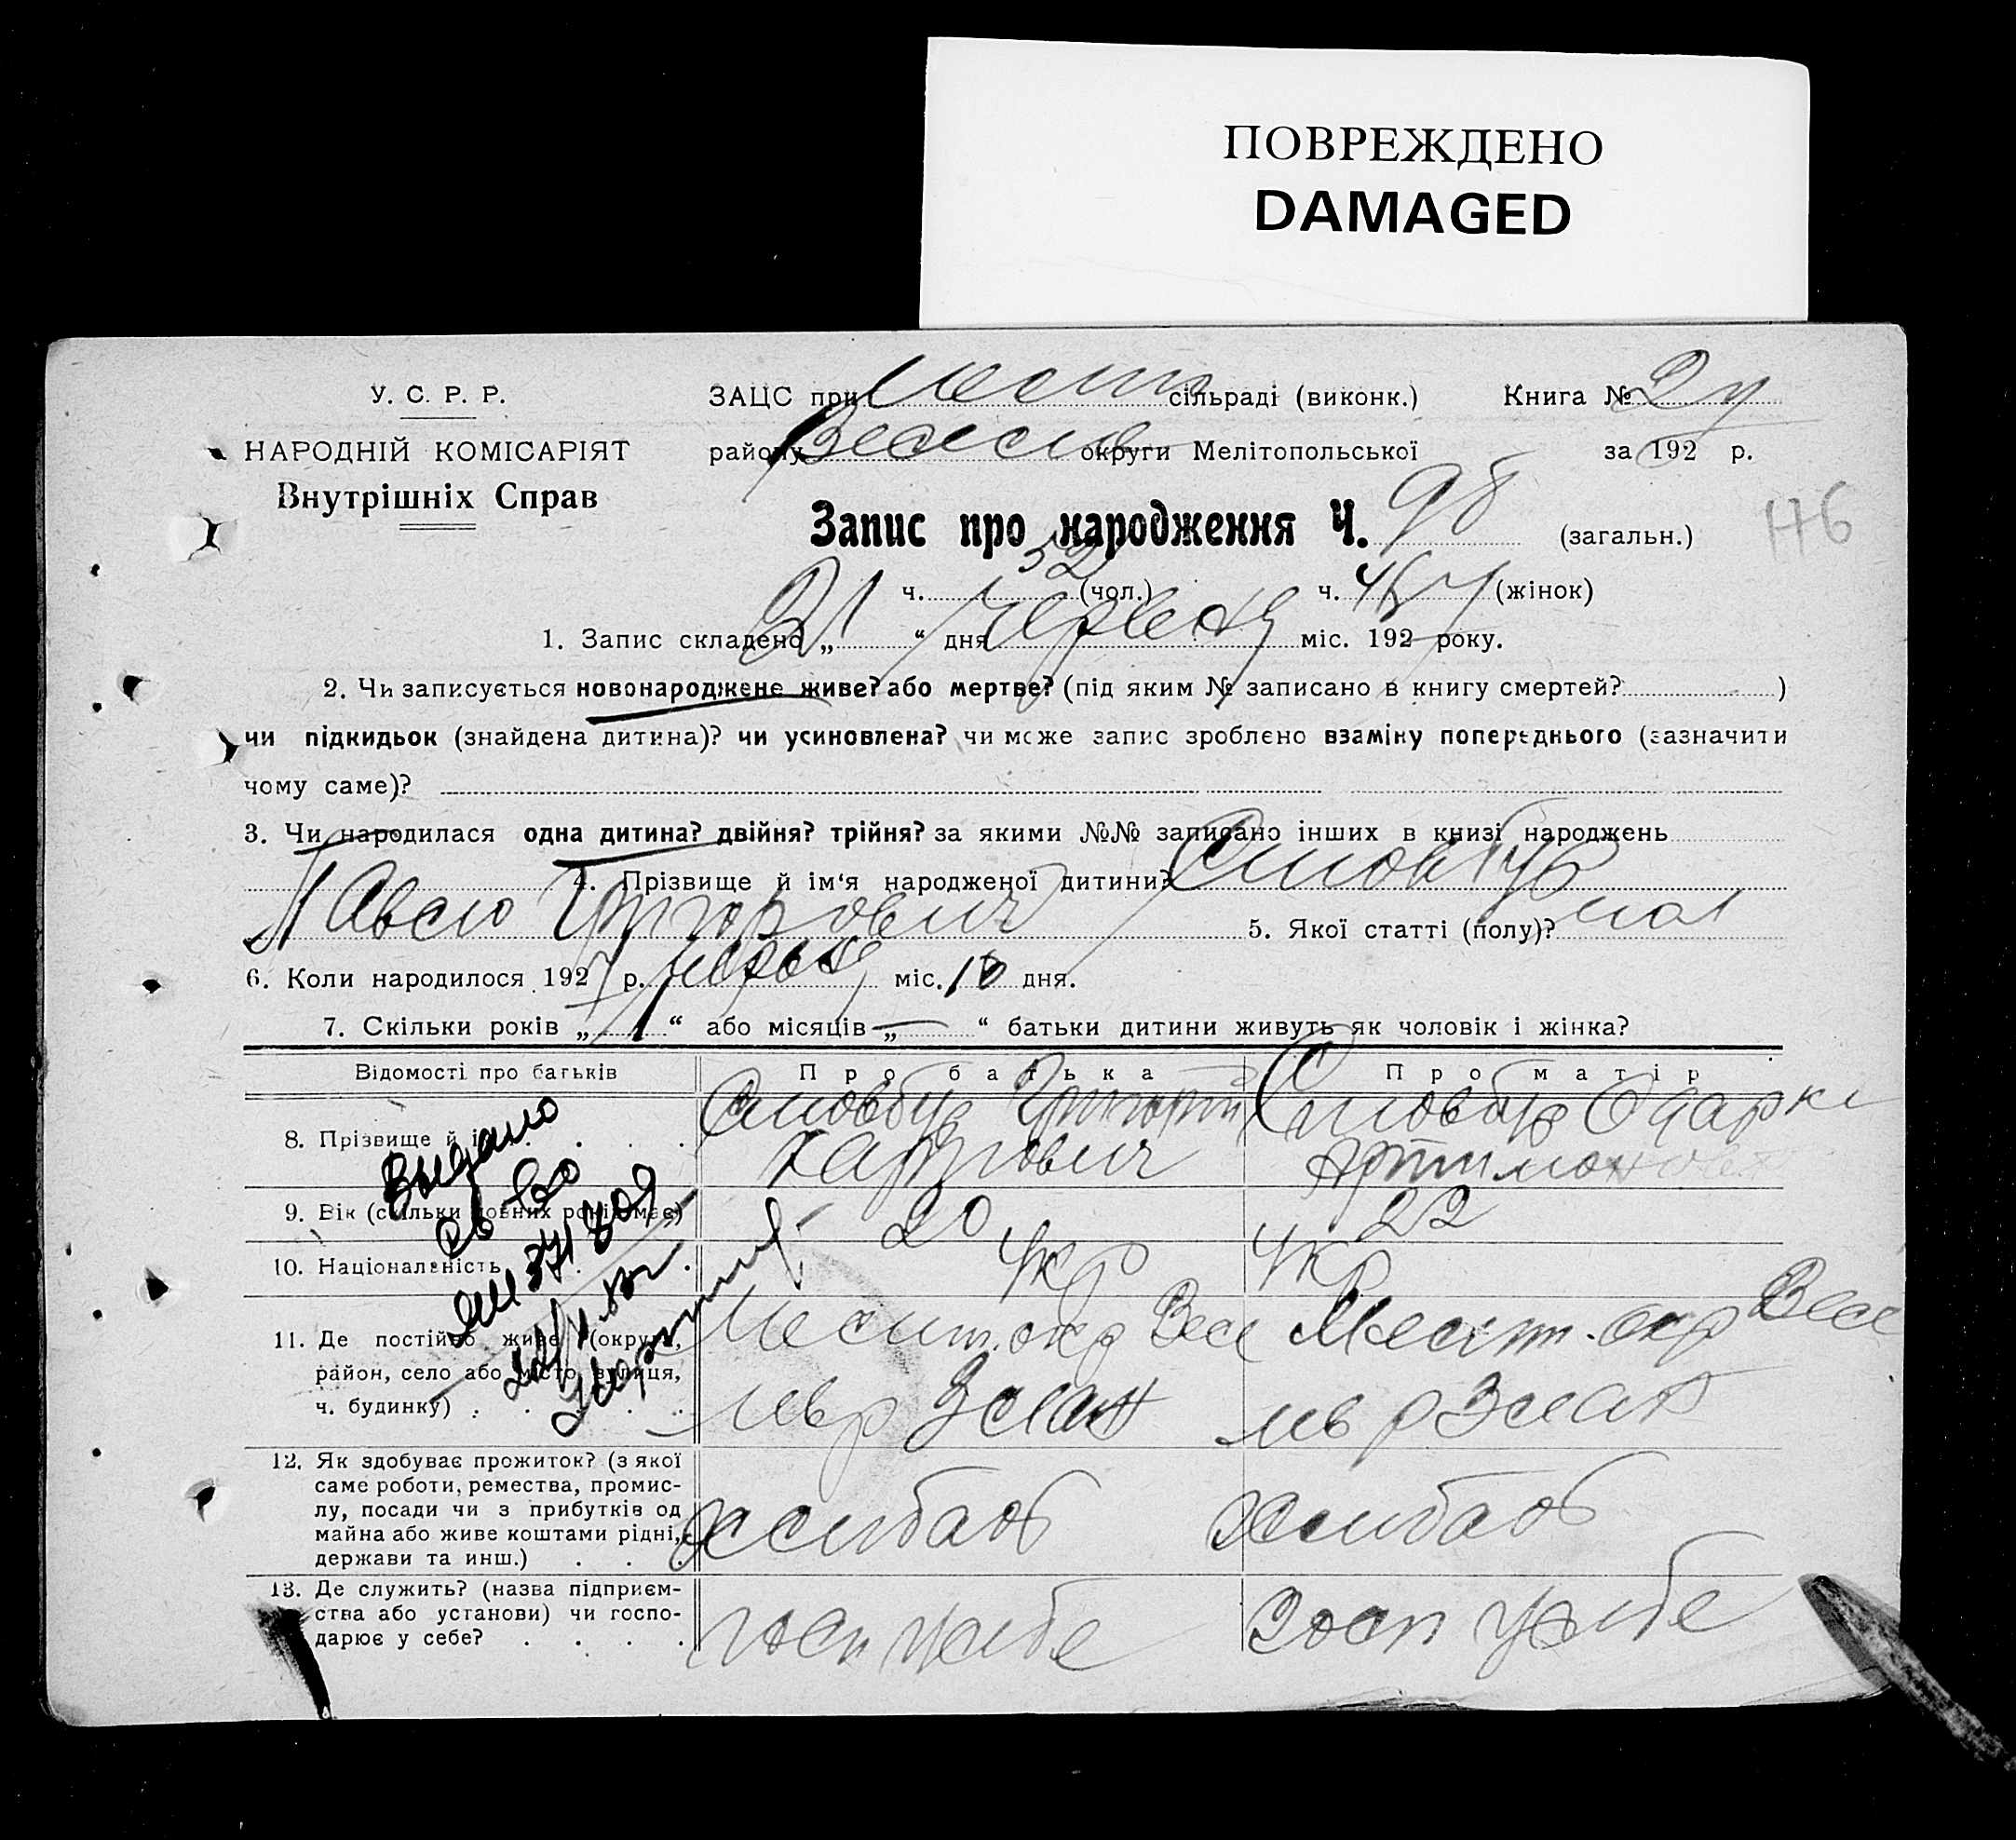 ПОВРЕЖДЕНО
DAMAGED
У. С. Р. Р.
ЗАЦС при сільраді (виконк.) Книга №
НАРОДНІЙ КОМІСАРІЯТ
району округи Мелітопольської за 192 р.
Внутрішніх Справ
Запис про народження Ч. 98 (загальн.)
146
ч. 52 (чол.) ч. 46 (жінок)
1. Запис складено „ 21 “ дня Червня міс. 1927 року.
2. Чи записується новонароджене живе? або мертве? (під яким № записано в книгу смертей? )
чи підкидьок (знайдена дитина)? чи усиновлена? чи може запис зроблено взаміну попереднього (зазначити
чому саме)?
3. Чи народилася одна дитина? двійня? трійня? за якими №№ записано інших в книзі народжень
4. Прізвище й ім‘я народженої дитини?
Павло Григорович 5. Якої статті (полу)? чол
6. Коли народилося 1927 р. червня міс. дня.
7. Скільки років „ 1 “ або місяців „ — “ батьки дитини живуть як чоловік і жінка?
Відомості про батьків Про батька Про матір
8. Прізвище й Стовбур Григорій Стовбур Одарка
Карпович
9. Вік (скільки повних років має) 20 22
10. Національність Укр Укр
11. Де постійно живе (округа, Меліт. окр Весе Меліт. окр Весе
район, село або місто вулиця,
ч. будинку)
Выдано
св-во
12. Як здобуває прожиток? (з якої
саме роботи, ремества, промис-
лу, посади чи з прибутків од
майна або живе коштами рідні,
держави та инш.) хлібороб хлібороб
13. Де служить? (назва підприєм-
ства або установи) чи госпо-
дарює у себе? госп у себе госп у себе